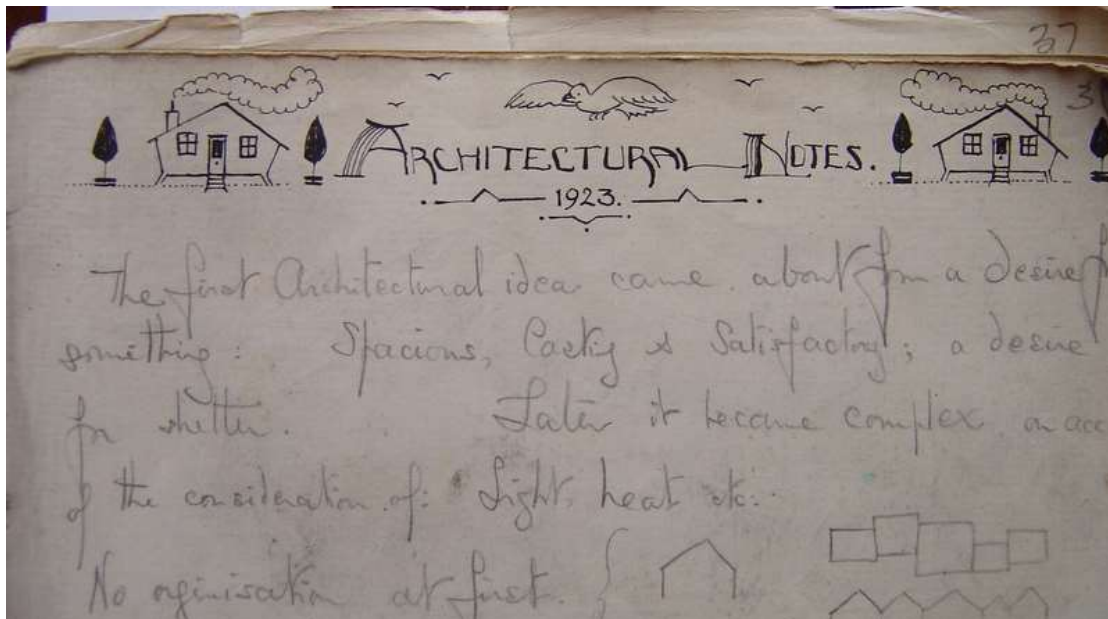 37
3
ARCHITECTURAL NOTES.
1923.
The first Architectural idea came about from a desire f
something: Spacious, Lasting & Satisfactory; a desire
for shelter. Later it became complex on acc
of the consideration of: Light, heat etc:
No orginisation at first.